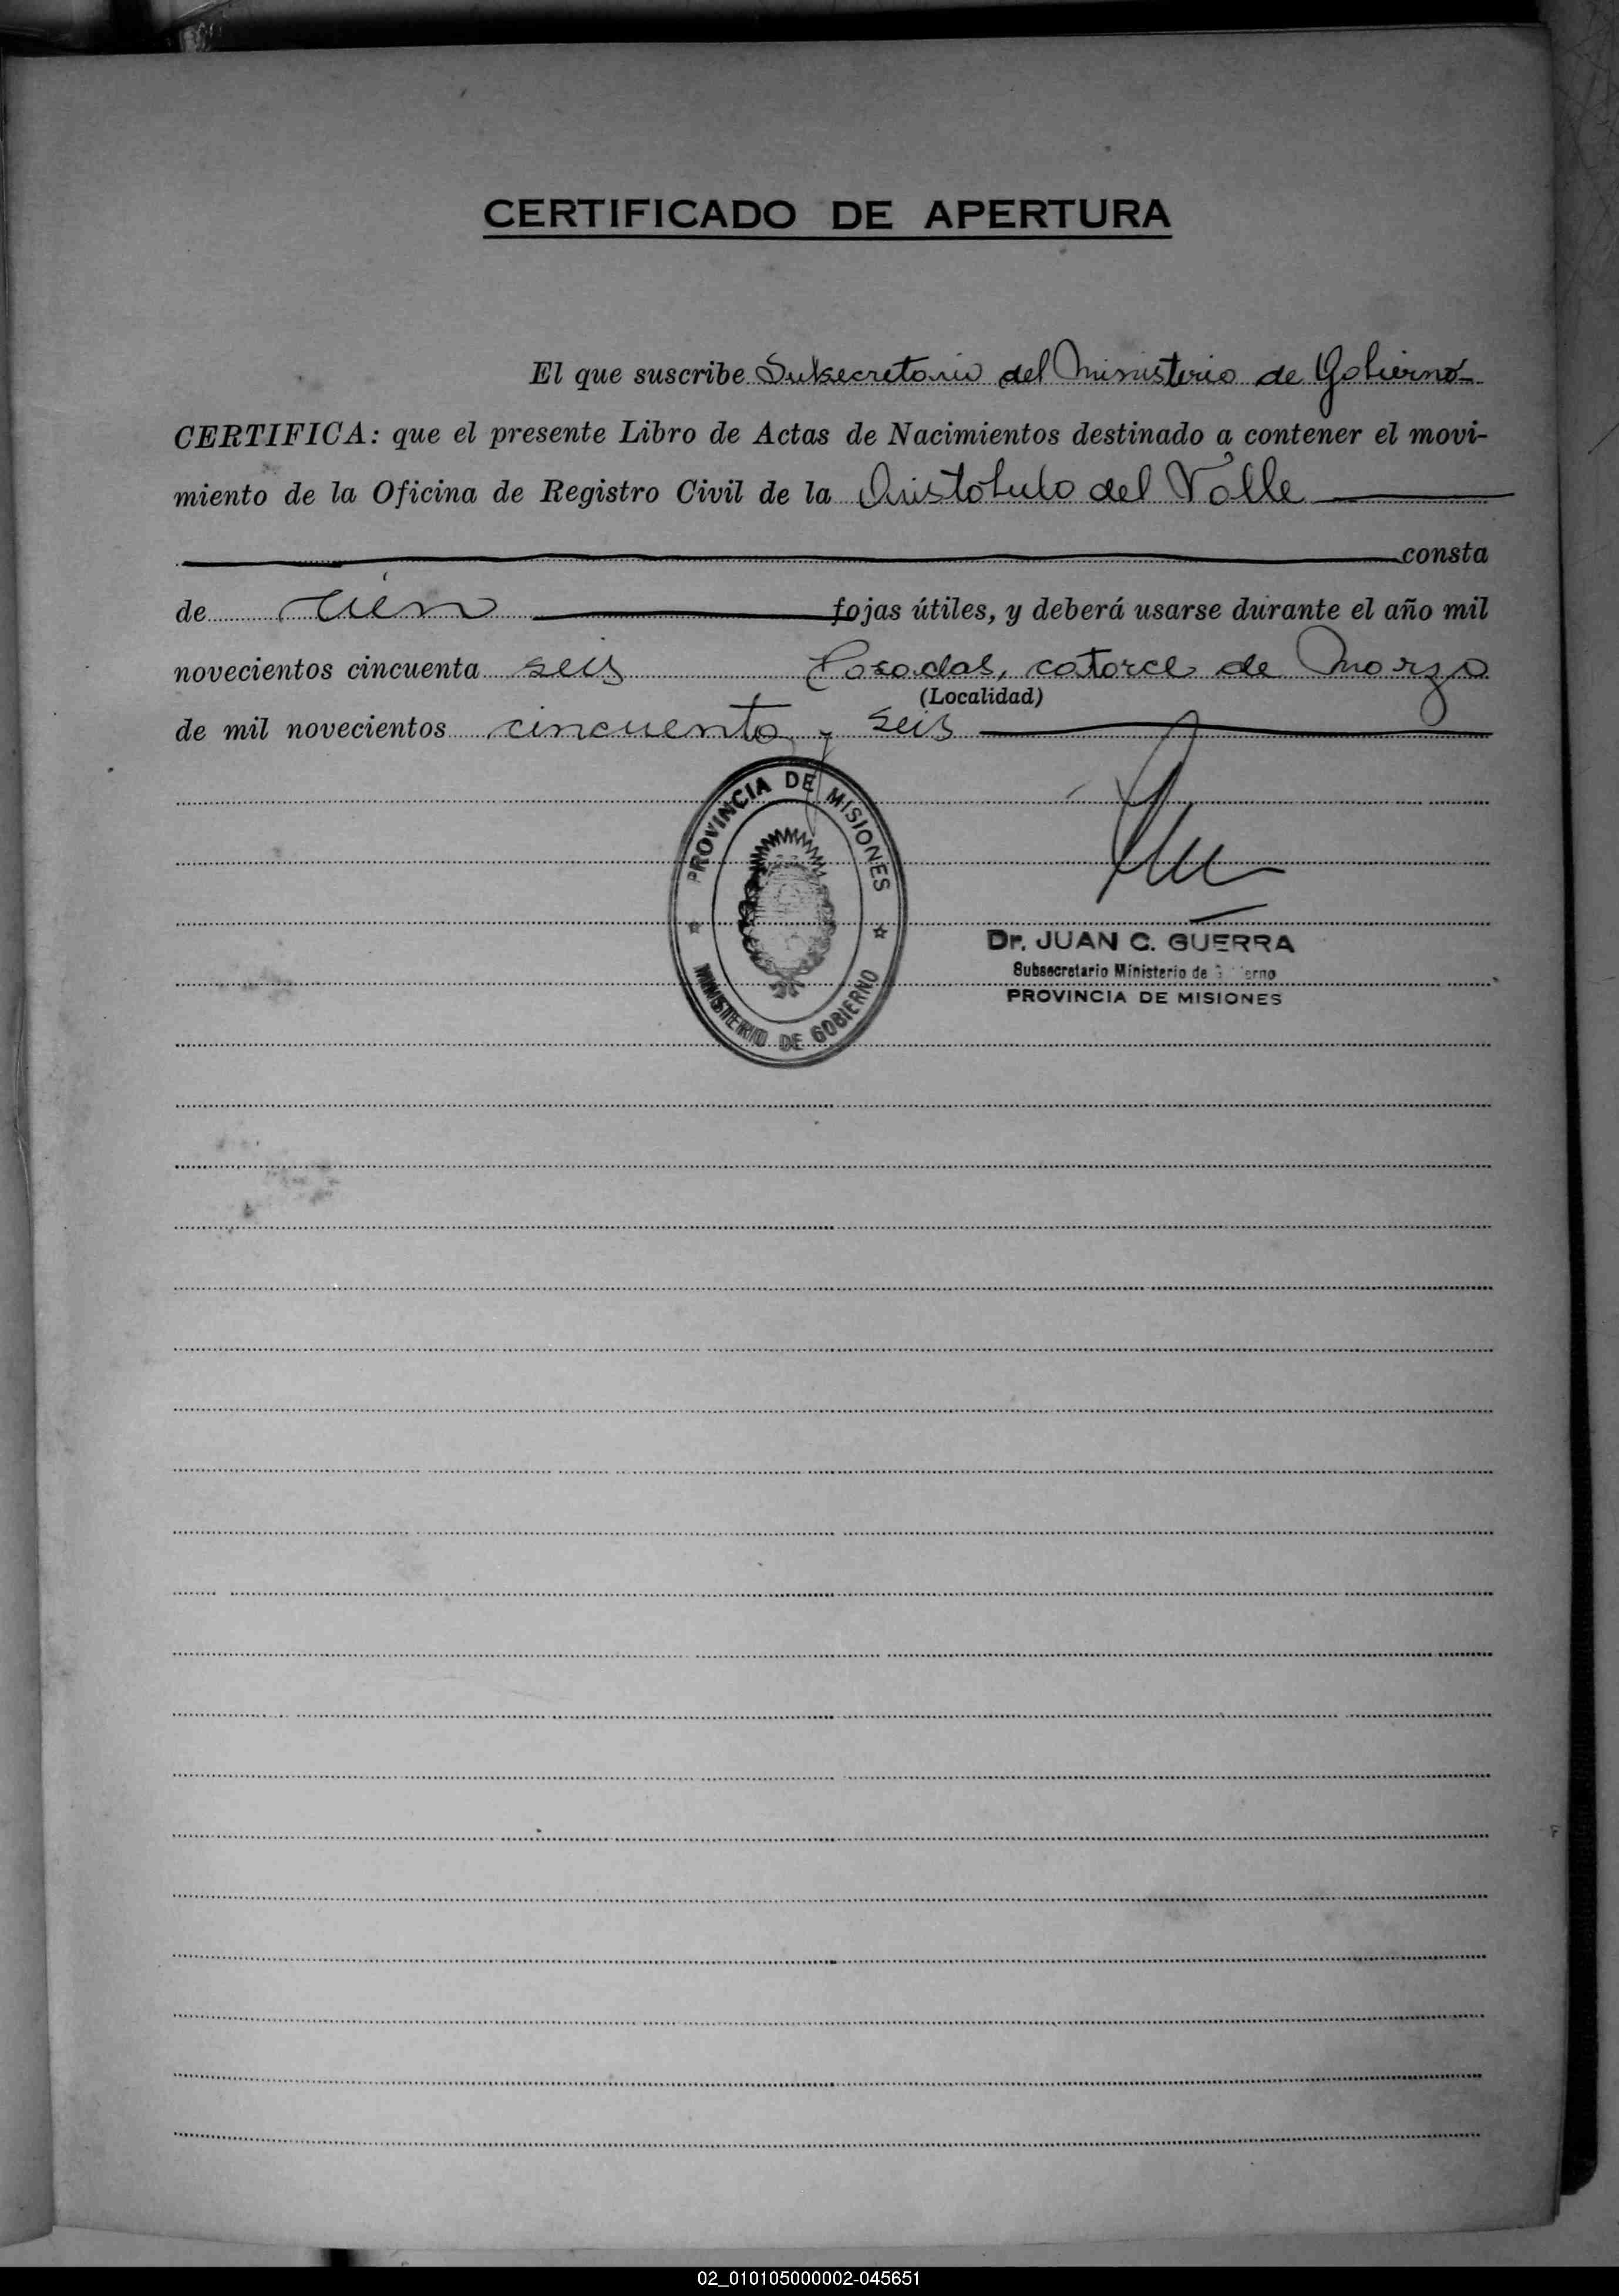 CERTIFICADO DE APERTURA
El que suscribe Subsecretario del Ministerio de Gobierno
CERTIFICA: que el presente Libro de Actas de Nacimientos destinado a contener el movi-
miento de la Oficina de Registro Civil de la Aristobulo del Valle
consta
de cien fojas útiles, y deberá usarse durante el año mil
novecientos cincuenta seis Posadas, catorce de Marzo
(Localidad)
de mil novecientos cincuenta y seis
PROVINCIA DE MISIONES
MINISTERIO DE GOBIERNO
Dr. JUAN C. GUERRA
Subsecretario Ministerio de
PROVINCIA DE MISIONES
02_010105000002-045651